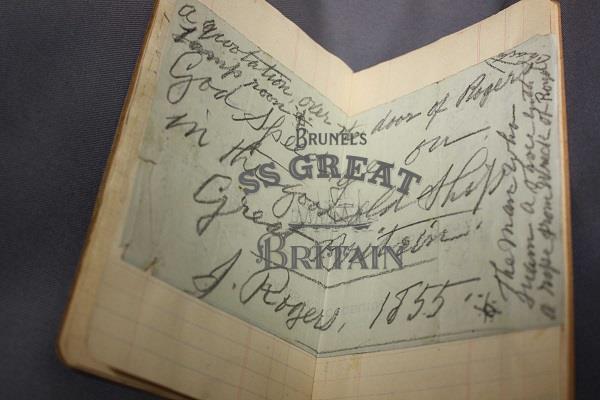 a quotation, over the door of Rogers
Lamp room *
God Speed you on,
in the good old Ship
Great Britain.
J. Rogers, 1855.
* The Man who
swam a shore with
a rope from Wreck of Royal
BRUNEL'S
SS GREAT
BRITAIN